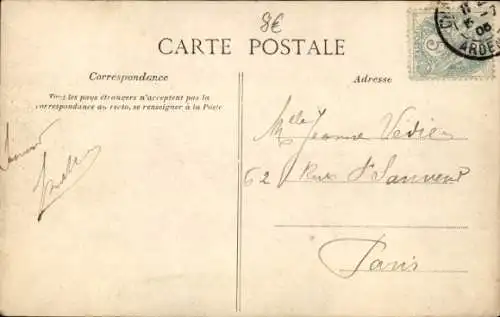 8€
CARTE POSTALE
Correspondance
Adresse
Tous les pays étrangers n'acceptent pas la
correspondance au recto, se renseigner à la Poste
Mlle Jeanne Védie
62 Rue St Sauveur
Paris
ARDEN